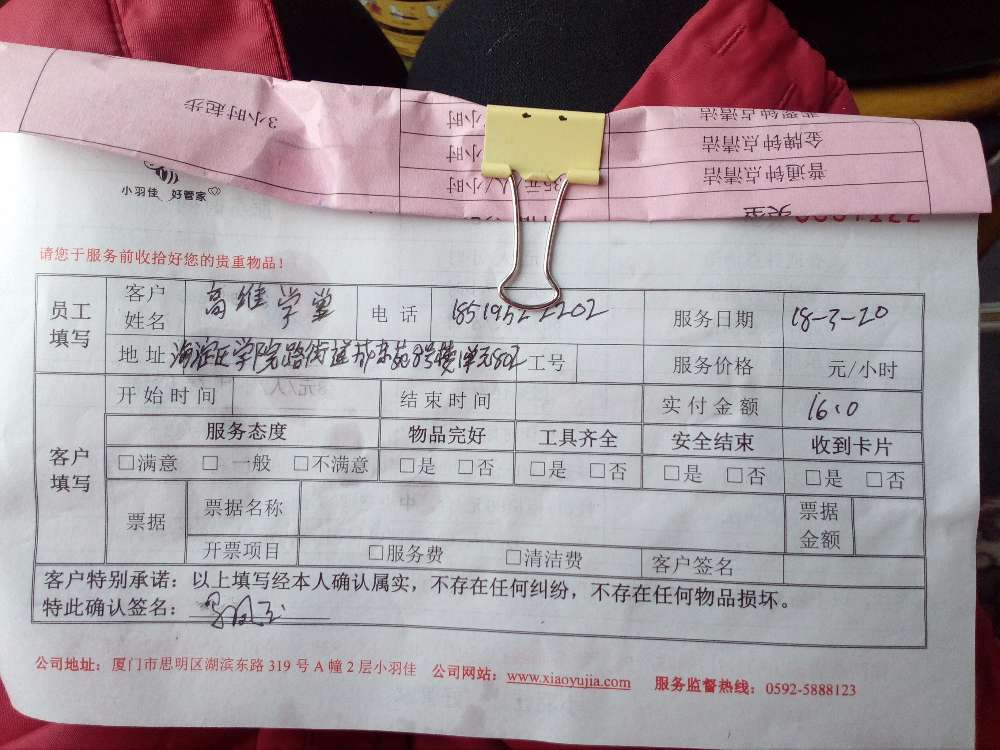 3小时起步
/小时
普通钟点清洁
金牌钟点清洁
35元/人/小时
小羽佳 好管家
请您于服务前收拾好您的贵重物品!
员工填写
客户姓名 高维学堂 电话 服务日期 18-3-20
地址 工号 服务价格 元/小时
开始时间 结束时间 实付金额 1600
客户填写
服务态度 物品完好 工具齐全 安全结束 收到卡片
□满意 □一般 □不满意 □是 □否 □是 □否 □是 □否 □是 □否
票据 票据名称 票据金额
开票项目 □服务费 □清洁费 客户签名
客户特别承诺:以上填写经本人确认属实,不存在任何纠纷,不存在任何物品损坏。
特此确认签名:
公司地址:厦门市思明区湖滨东路 319 号 A 幢 2 层小羽佳 公司网站:www.xiaoyujia.com 服务监督热线:0592-5888123